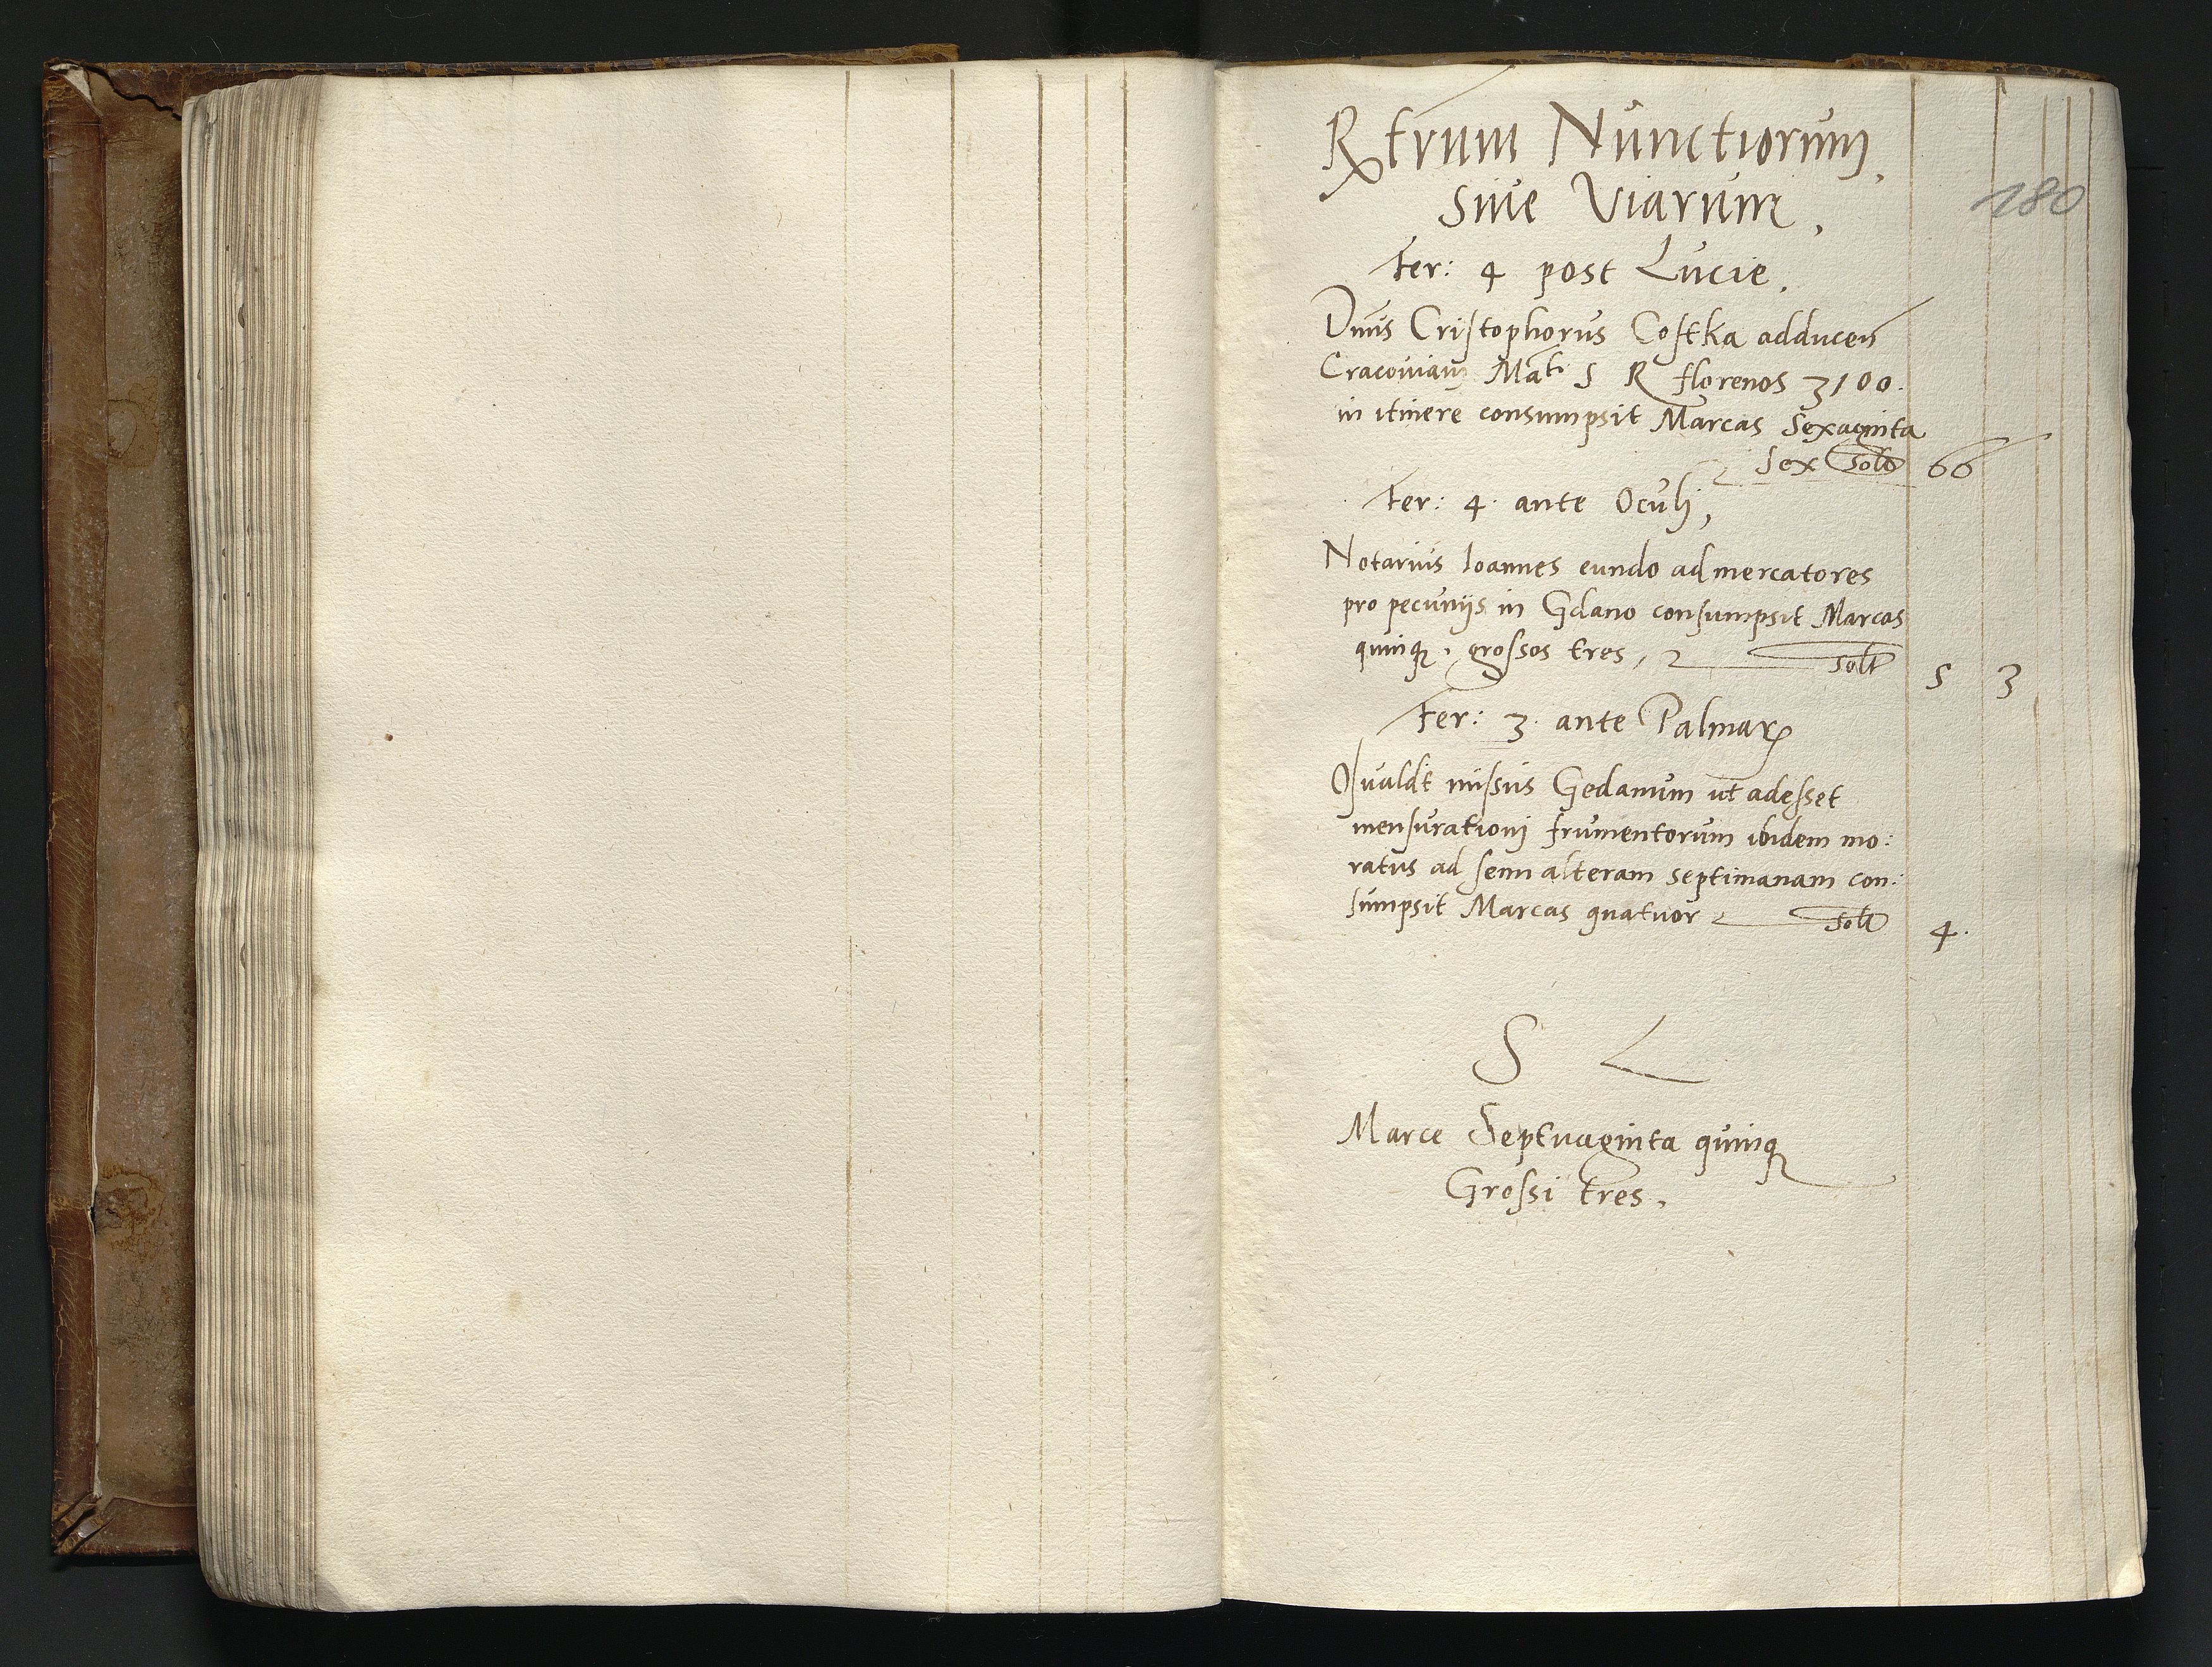 Rxtrum Nunctiorum,
siue Viarum,
180
Fer: 4 post Lucie.
Dnus Cristophorus Costka adducen
Cracouiam Mati S R florenos 3100.
in itinere consumpsit Marcas Sexaginta
Sex solt 66
Fer: 4. ante Oculj,
Notarius Ioannes eundo ad mercatores
pro pecunijs in Gdano consumpsit Marcas
quinq. grossos tres, solt 5 3
Fer: 3. ante Palmar
Osualdt missus Gedanum ut adesset
mensurationj frumentorum ibidem mo:
ratus ad alteram septimanam con:
sumpsit Marcas quatuor solt 4.
S L
Marce Septuaginta quinq
Grossi tres.